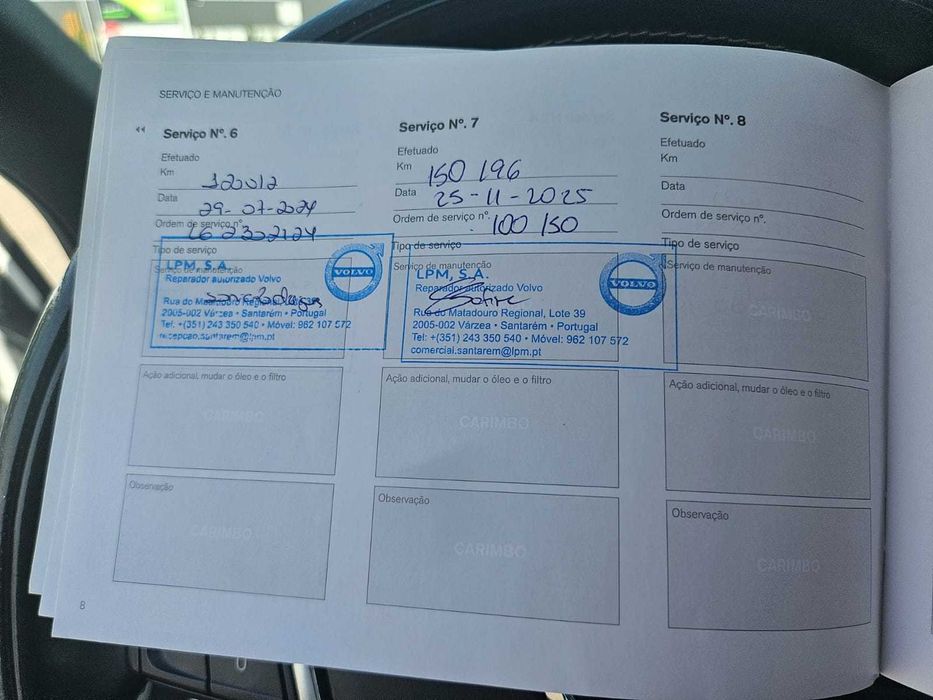 SERVIÇO E MANUTENÇÃO
Serviço Nº. 6
Efetuado
Km 120012
Data 29-07-2024
Ordem de serviço nº.
Tipo de serviço
Serviço de manutenção
LPM, S.A.
Reparador autorizado Volvo
VOLVO
Rua do Matadouro Regional,
2005-002 Várzea • Santarém • Portugal
Tel: +(351) 243 350 540 • Móvel: 962 107 572
recepcao.santarem@lpm.pt
Ação adicional, mudar o óleo e o filtro
CARIMBO
Observação
CARIMBO
8
Serviço Nº. 7
Efetuado
Km 150 196
Data 25-11-2025
Ordem de serviço nº. 100 150
Tipo de serviço
Serviço de manutenção
LPM, S.A.
Reparador autorizado Volvo
VOLVO
Rua do Matadouro Regional, Lote 39
2005-002 Várzea • Santarém • Portugal
Tel: +(351) 243 350 540 • Móvel: 962 107 572
comercial.santarem@lpm.pt
Ação adicional, mudar o óleo e o filtro
CARIMBO
Observação
CARIMBO
Serviço Nº. 8
Efetuado
Km
Data
Ordem de serviço nº.
Tipo de serviço
Serviço de manutenção
CARIMBO
Ação adicional, mudar o óleo e o filtro
CARIMBO
Observação
CARIMBO